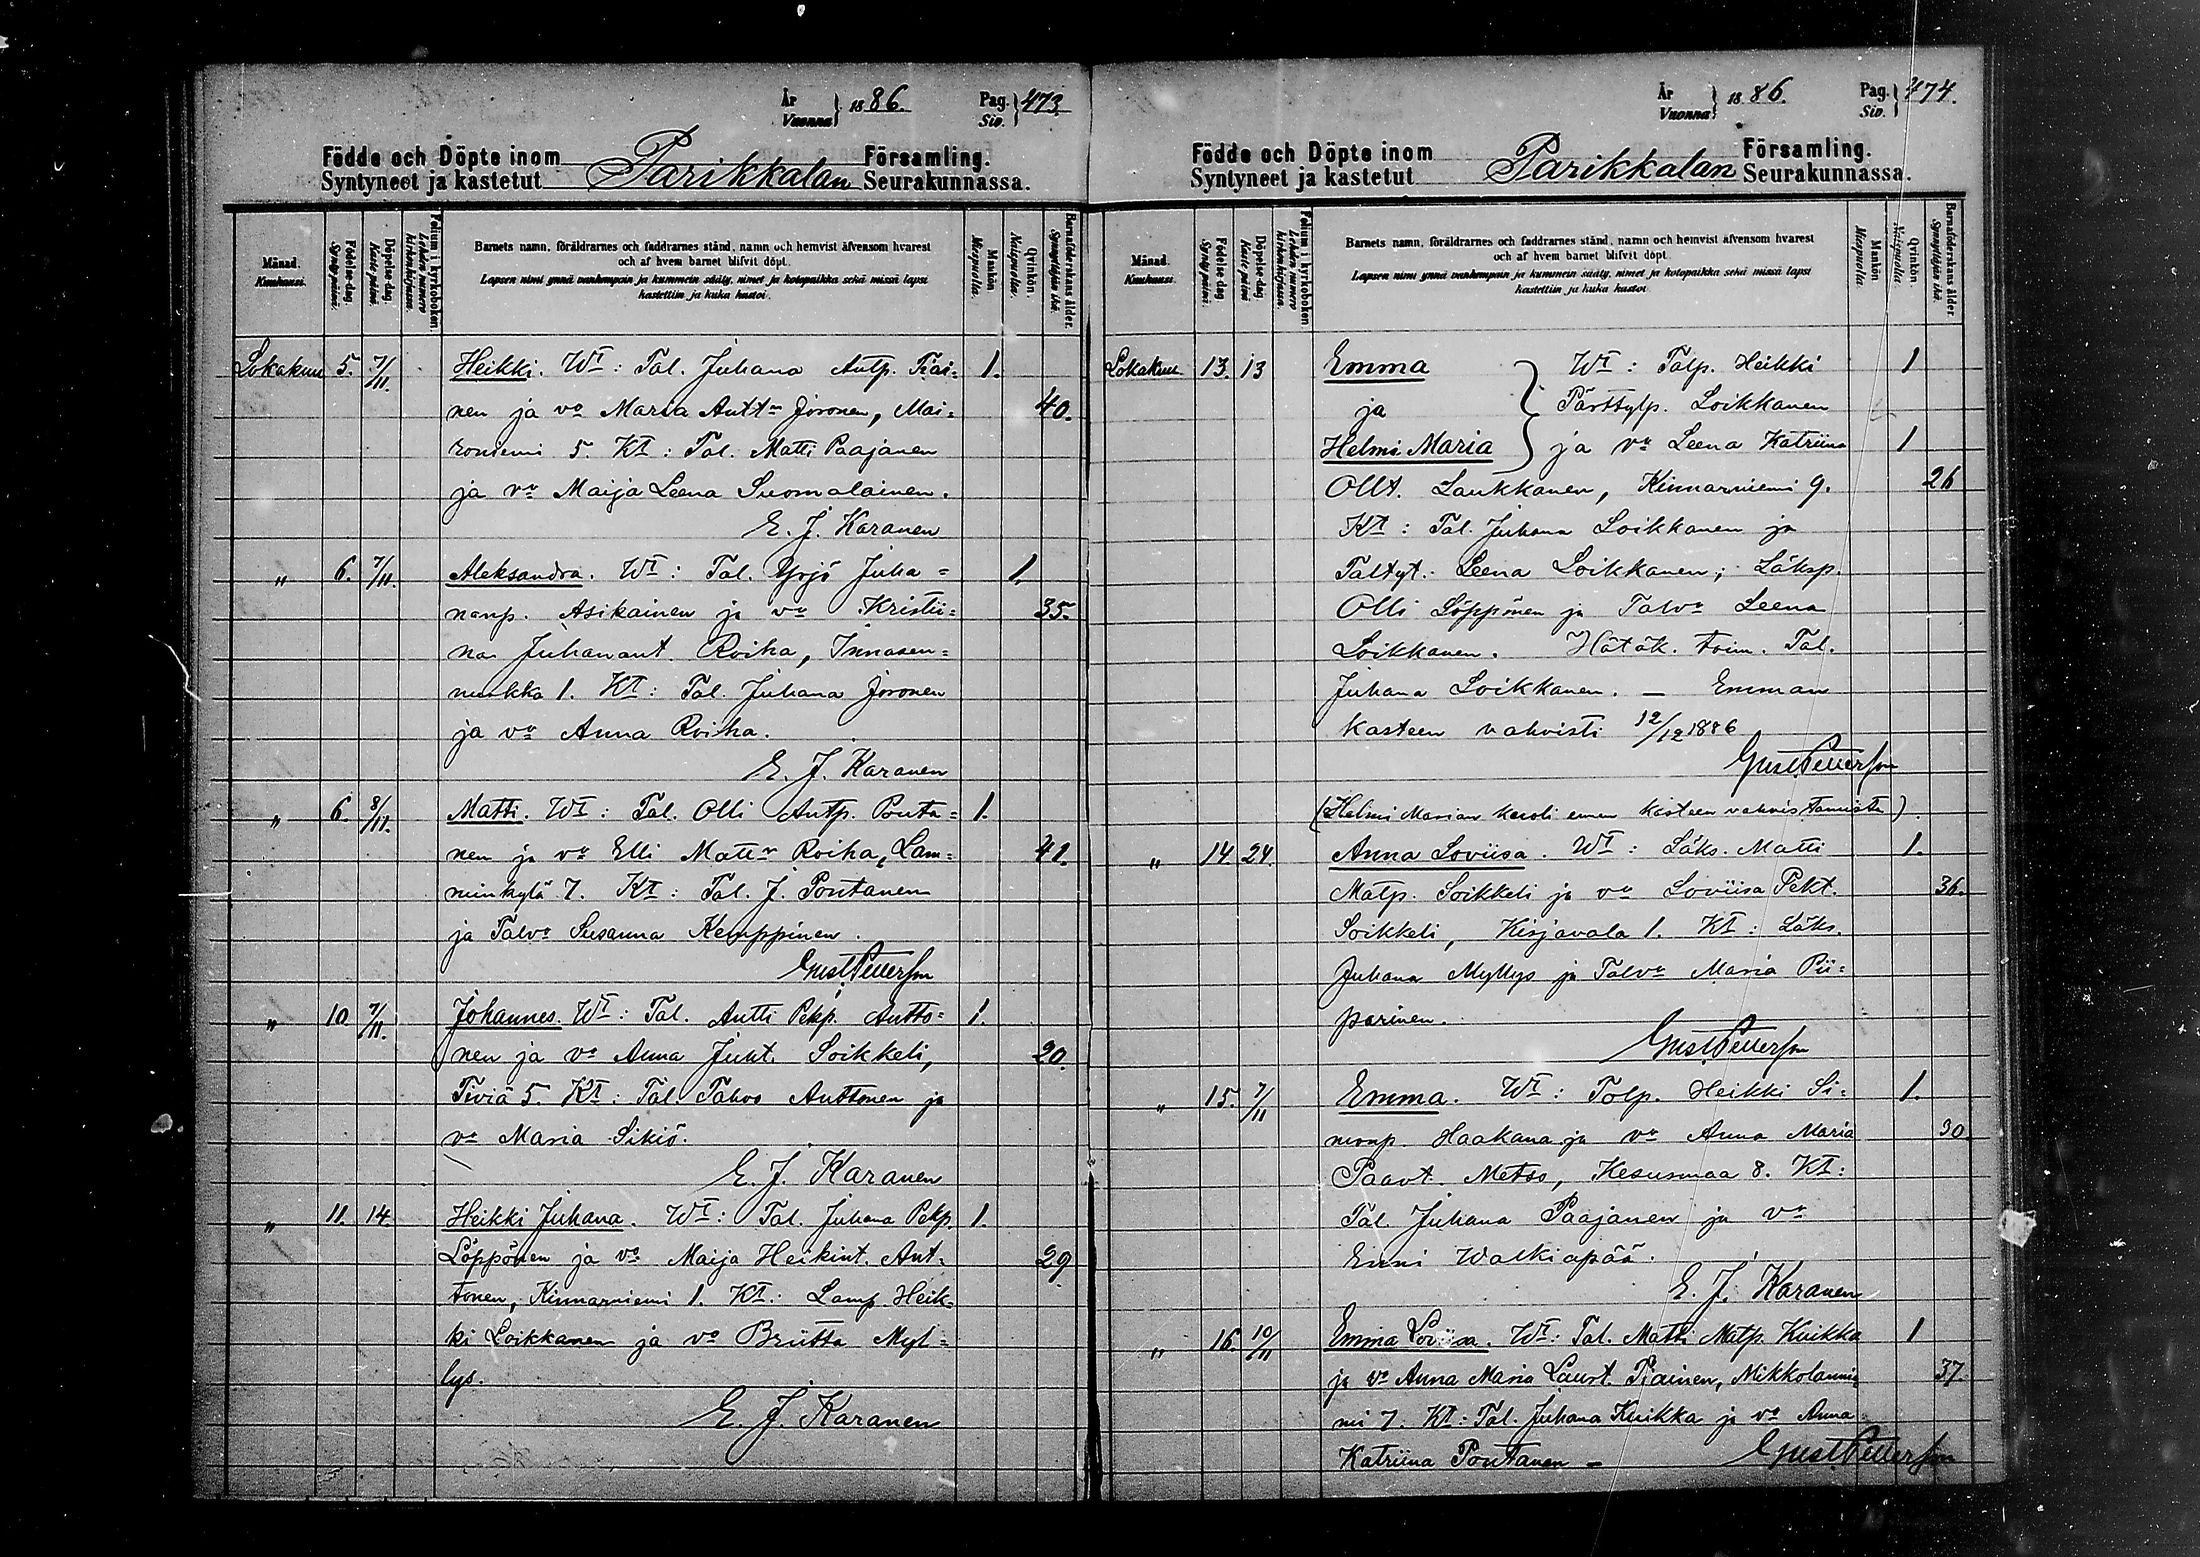 År
Vuonna } 1886. Pag.
Siv. } 473.
Födde och Döpte inom Parikkalan Församling.
Syntyneet ja kastetut Seurakunnassa.
Månad. Kuukausi.
Födelse-dag. Syntypäivä.
Döpelse-dag. Kastepäivä.
Folium i kyrkoboken. Lehden numero kirkonkirjassa.
Barnets namn, föräldrarnes och faddrarnes stånd, namn och hemvist äfvensom hvarest
och af hvem barnet blifvit döpt.
Lapsen nimi ynnä vanhempain ja kummein sääty, nimet ja kotopaikka sekä missä lapsi
kastettiin ja kuka kastoi.
Mankön. Miespuolia.
Qvinkön. Naispuolia.
Barnaföderskans ålder. Synnyttäjän ikä.
Lokakuu 5. 7/11. Heikki. Wt: Tal. Juhana Antp. Tiai= 1.
nen ja vo Maria Anttr Joronen, Mai= 40.
roniemi 5. Kt: Tal. Matti Paajanen
ja vo Maija Leena Suomalainen.
E. J. Karanen
" 6. 7/11. Aleksandra. Wt: Tal. Yrjö Juha= 1.
nanp. Asikainen ja vo Kristii= 35.
na Juhanant. Roiha, Innasen=
nurkka 1. Kt: Tal. Juhana Joronen
ja vo Anna Roiha.
E. J. Karanen
" 6. 8/11. Matti. Wt: Tal. Olli Antp. Ponta= 1.
nen ja vo Elli Mattr Roiha, Lam= 41.
minkylä 7. Kt: Tal. J. Pontanen
ja Talvo Susanna Kemppinen.
Gust. Petterson
" 10. 7/11. Johannes. Wt: Tal. Antti Pekp. Antto= 1.
nen ja vo Anna Juht. Soikkeli, 20.
Tiviä 5. Kt: Tal. Tahvo Anttonen ja
vo Maria Sikiö.
E. J. Karanen
" 11. 14 Heikki Juhana. Wt: Tal. Juhana Pekp. 1.
Löppönen ja vo Maija Heikint. Ant= 29
tonen, Kinnarniemi 1. Kt: Lamp. Heik=
ki Loikkanen ja vo Briitta Myl=
lys.
E. J. Karanen
År
Vuonna } 1886. Pag.
Siv. } 474.
Födde och Döpte inom Parikkalan Församling.
Syntyneet ja kastetut Seurakunnassa.
Månad. Kuukausi.
Födelse-dag. Syntypäivä.
Döpelse-dag. Kastepäivä.
Folium i kyrkoboken. Lehden numero kirkonkirjassa.
Barnets namn, föräldrarnes och faddrarnes stånd, namn och hemvist äfvensom hvarest
och af hvem barnet blifvit döpt.
Lapsen nimi ynnä vanhempain ja kummein sääty, nimet ja kotopaikka sekä missä lapsi
kastettiin ja kuka kastoi.
Mankön. Miespuolia.
Qvinkön. Naispuolia.
Barnaföderskans ålder. Synnyttäjän ikä.
Lokakuu 13. 13 Emma Wt: Talp. Heikki 1
ja Pärttylp. Loikkanen
Helmi Maria ja vo Leena Katriina 1
Ollt. Laukkanen, Kinnarniemi 9. 26
Kt: Tal. Juhana Loikkanen ja
Taltyt. Leena Loikkanen; Läksp.
Olli Löppönen ja Talvo Leena
Loikkanen. Hätäk. toim. Tal.
Juhana Loikkanen. — Emman
kasteen vahvisti 12/12 1886
Gust. Petterson
(Helmi Marian kuoli ennen kasteen vahvistamista).
" 14 24. Anna Loviisa. Wt: Läks. Matti 1.
Matp. Soikkeli ja vo Loviisa Pekt. 36.
Soikkeli, Kirjavala 1. Kt: Läks.
Juhana Myllys ja Talvo Maria Pii=
parinen.
Gust. Petterson
" 15. 7/11 Emma. Wt: Talp. Heikki Si= 1.
monp. Haakana ja vo Anna Maria 30
Paavt. Metso, Kesusmaa 8. Kt:
Tal. Juhana Paajanen ja vo
Enni Walkiapää.
E. J. Karanen
" 16. 10/11 Emma Loviisa. Wt: Tal. Matti Matp. Kuikka 1
ja vo Anna Maria Laurt. Tiainen, Mikkolanni= 37.
mi 7. Kt: Tal. Juhana Kuikka ja vo Anna
Katriina Pontanen — Gust. Petterson